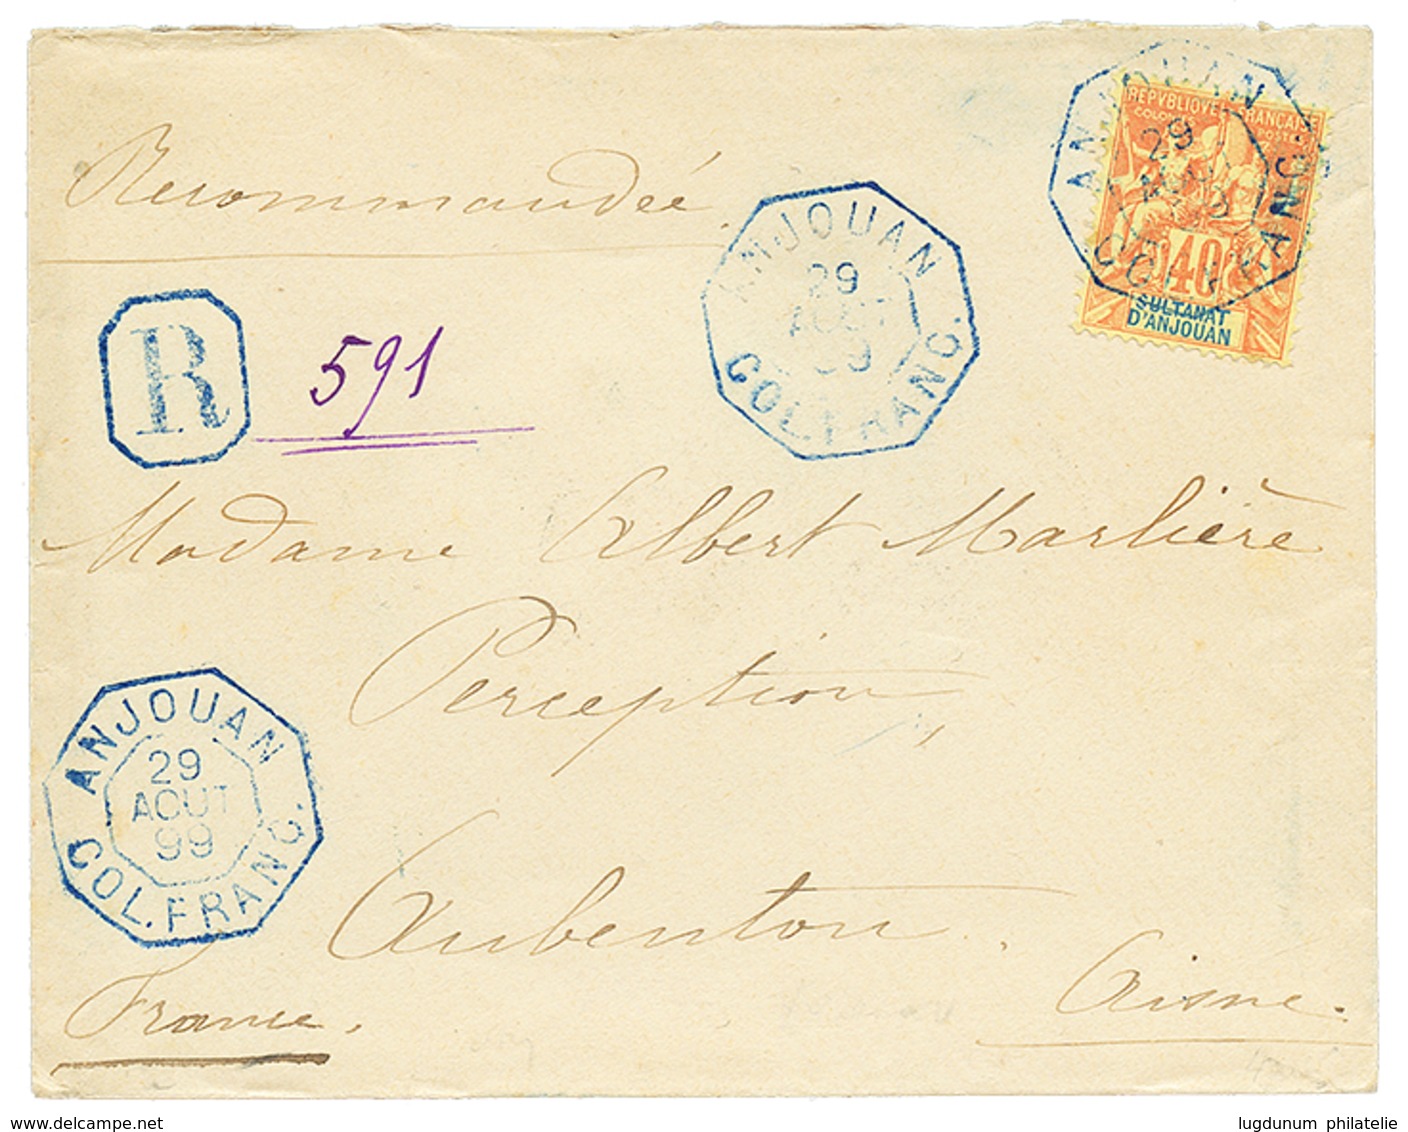 Recommandée
ANJOUAN
29
AOUT
99
COL. FRANC.
REPVBLIQVE FRANÇAISE
COLONIES POSTES
40
SULTANAT
D'ANJOUAN
ANJOUAN
29
AOUT
99
COL. FRANC.
R
591
Madame Albert Marlière
Perception
Aubenton
Aisne.
ANJOUAN
29
AOUT
99
COL. FRANC.
France.
www.delcampe.net
lugdunum philatelie